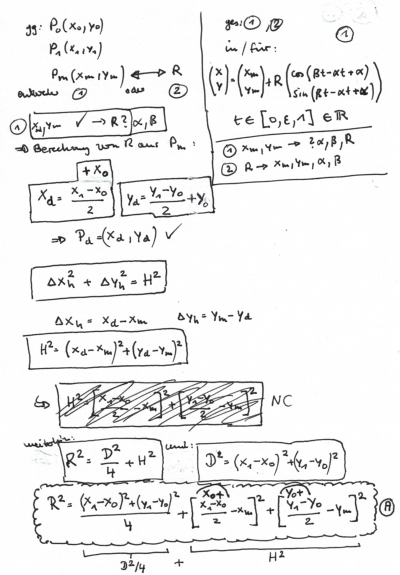 gg: P₀(x₀,y₀)
P₁(x₁,y₁)
Pm(xm,ym) ↔ R
entweder ① oder ②
① xm,ym ✓ → R? α,β
⇒ Berechnung von R aus Pm:
xd = (x₁-x₀)/2 + x₀ yd = (y₁-y₀)/2 + y₀
⇒ Pd=(xd,yd) ✓
Δxh² + Δyh² = H²
Δxh = xd-xm Δyh = ym-yd
H² = (xd-xm)²+(yd-ym)²
↳ H² = [(x₁-x₀)/2 - xm]² + [(y₁-y₀)/2 - ym]² NC
weiterhin: R² = D²/4 + H² und: D² = (x₁-x₀)²+(y₁-y₀)²
R² = ((x₁-x₀)²+(y₁-y₀)²)/4 + [x₀+ (x₁-x₀)/2 - xm]² + [y₀+ (y₁-y₀)/2 - ym]² Ⓐ
D²/4 + H²
ges: ①, ②
in/für: ①
(x y) = (xm ym) + R (cos(βt-αt+α) sin(βt-αt+α))
t ∈ [0,ε,1] ∈ ℝ
① xm,ym → ? α,β,R
② R → xm,ym,α,β